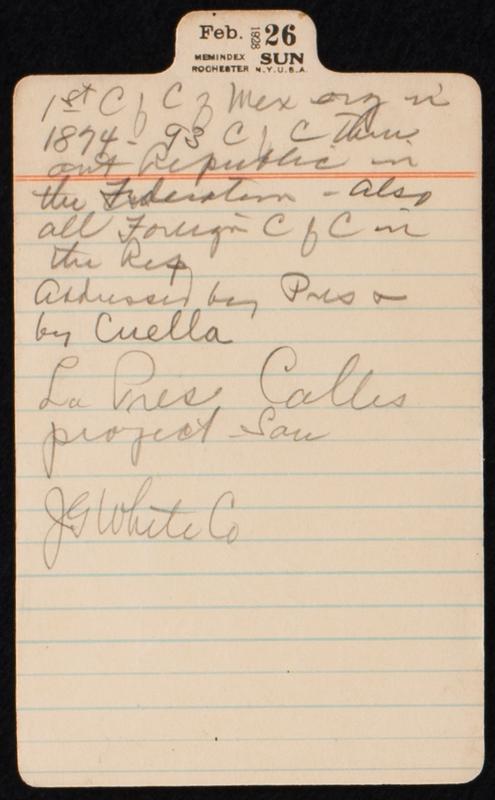 Feb. 1928 26
MEMINDEX SUN
ROCHESTER N.Y. U.S.A.
1st C of C of Mex org in
1874 - 93 C of C thru
out Republic in
the Federation - also
all Foreign C of C in
the Rep
Addressed by Pres &
by Cuella
La Pres Calles
project San
JG White Co